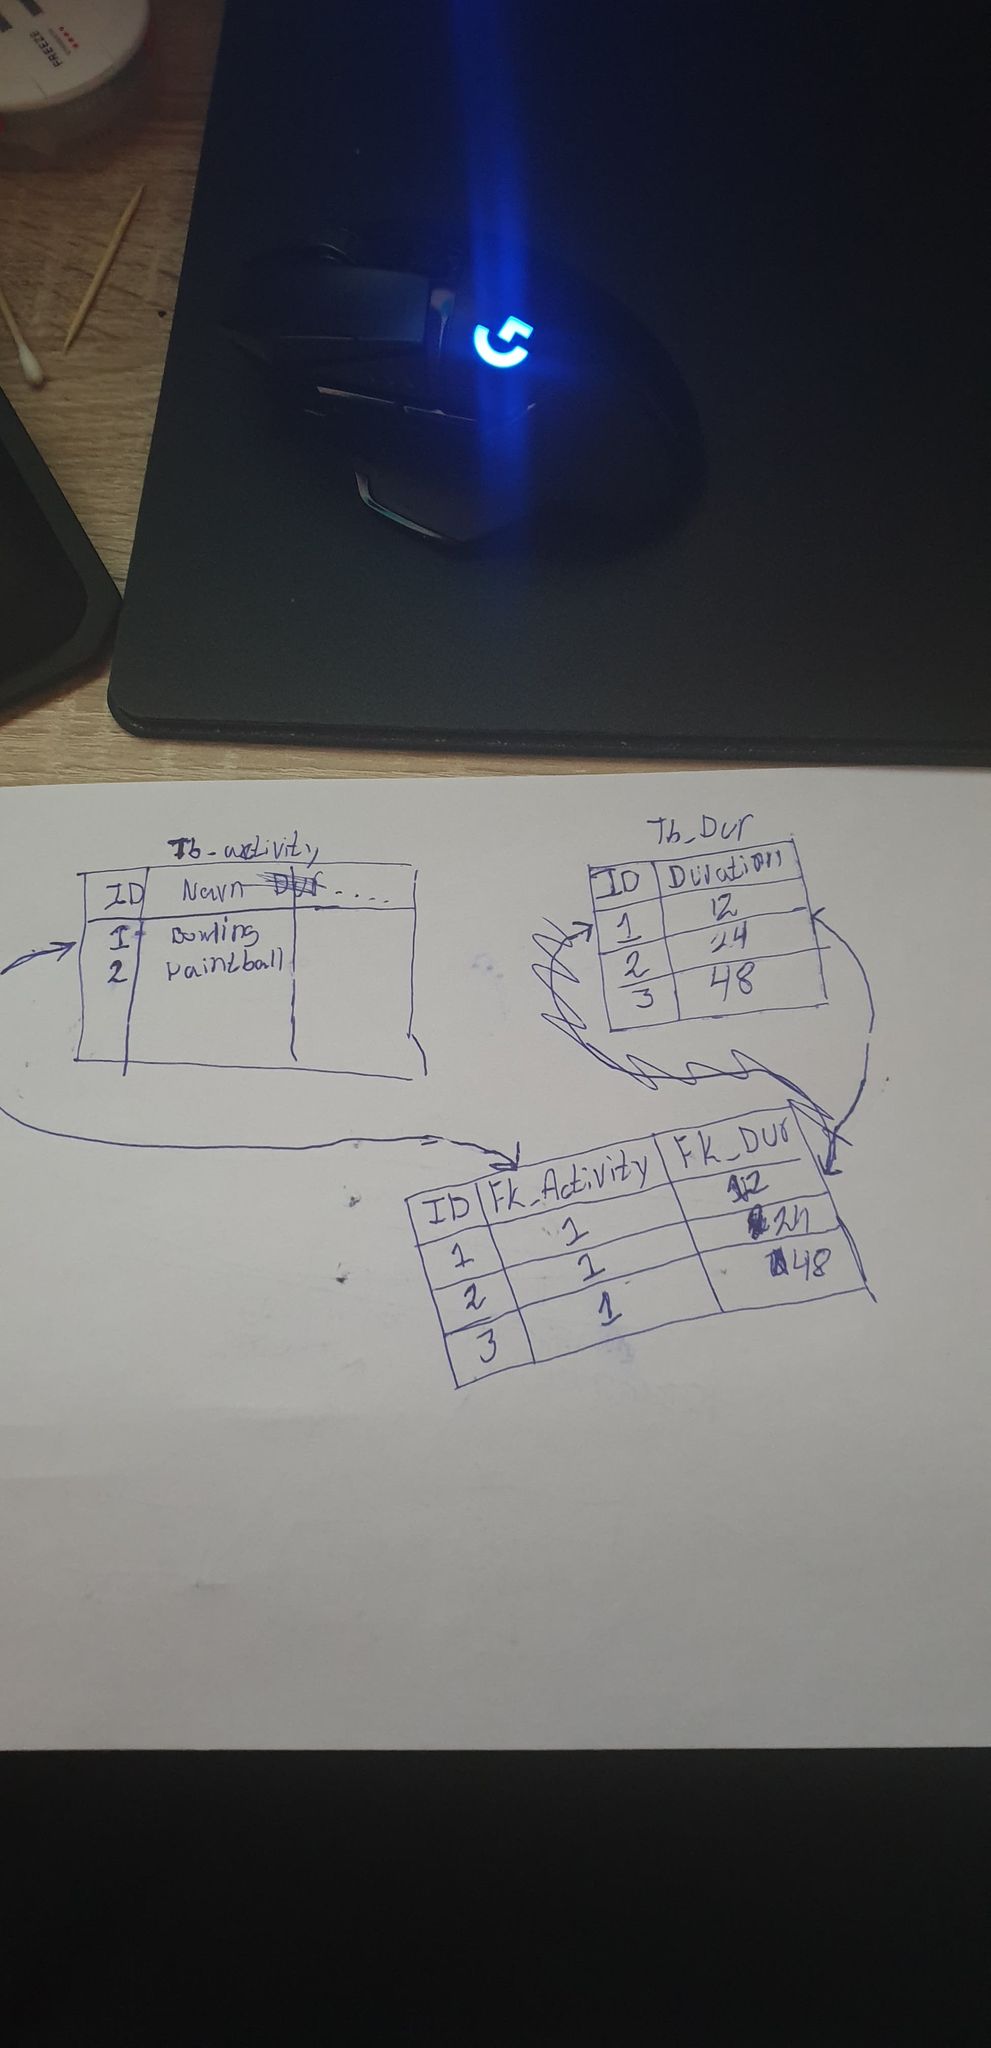 FREEZE
Tb_activity
ID Navn ...
1 Bowling
2 Paintball
Tb_Dur
ID Duration
1 12
2 24
3 48
ID Fk_Activity Fk_Dur
1 1 12
2 1 24
3 1 48